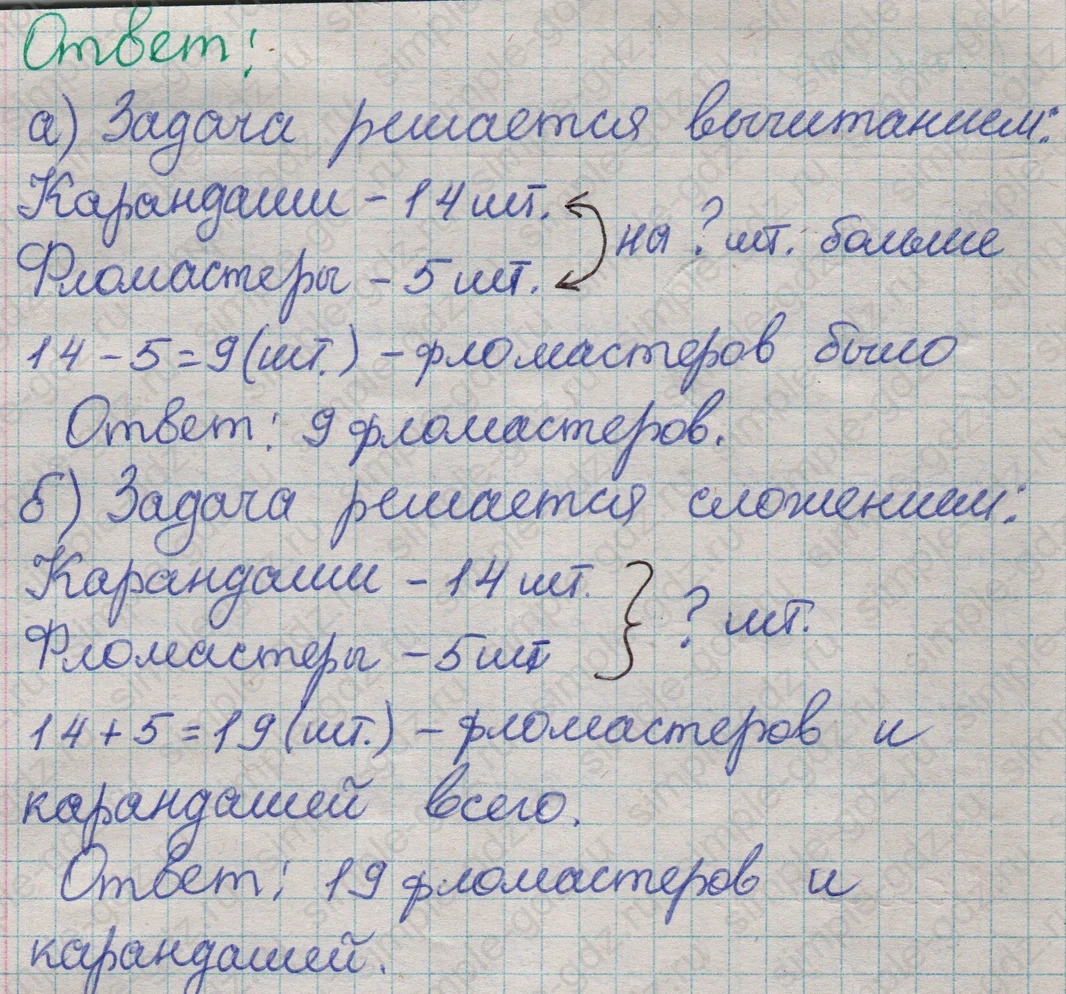 Ответ:
а) Задача решается вычитанием:
Карандаши - 14 шт.
на ? шт. больше
Фломастеры - 5 шт.
14 - 5 = 9 (шт.) - фломастеров было
Ответ: 9 фломастеров.
б) Задача решается сложением:
Карандаши - 14 шт.
? шт.
Фломастеры - 5 шт
14 + 5 = 19 (шт.) - фломастеров и
карандашей всего.
Ответ: 19 фломастеров и
карандашей.